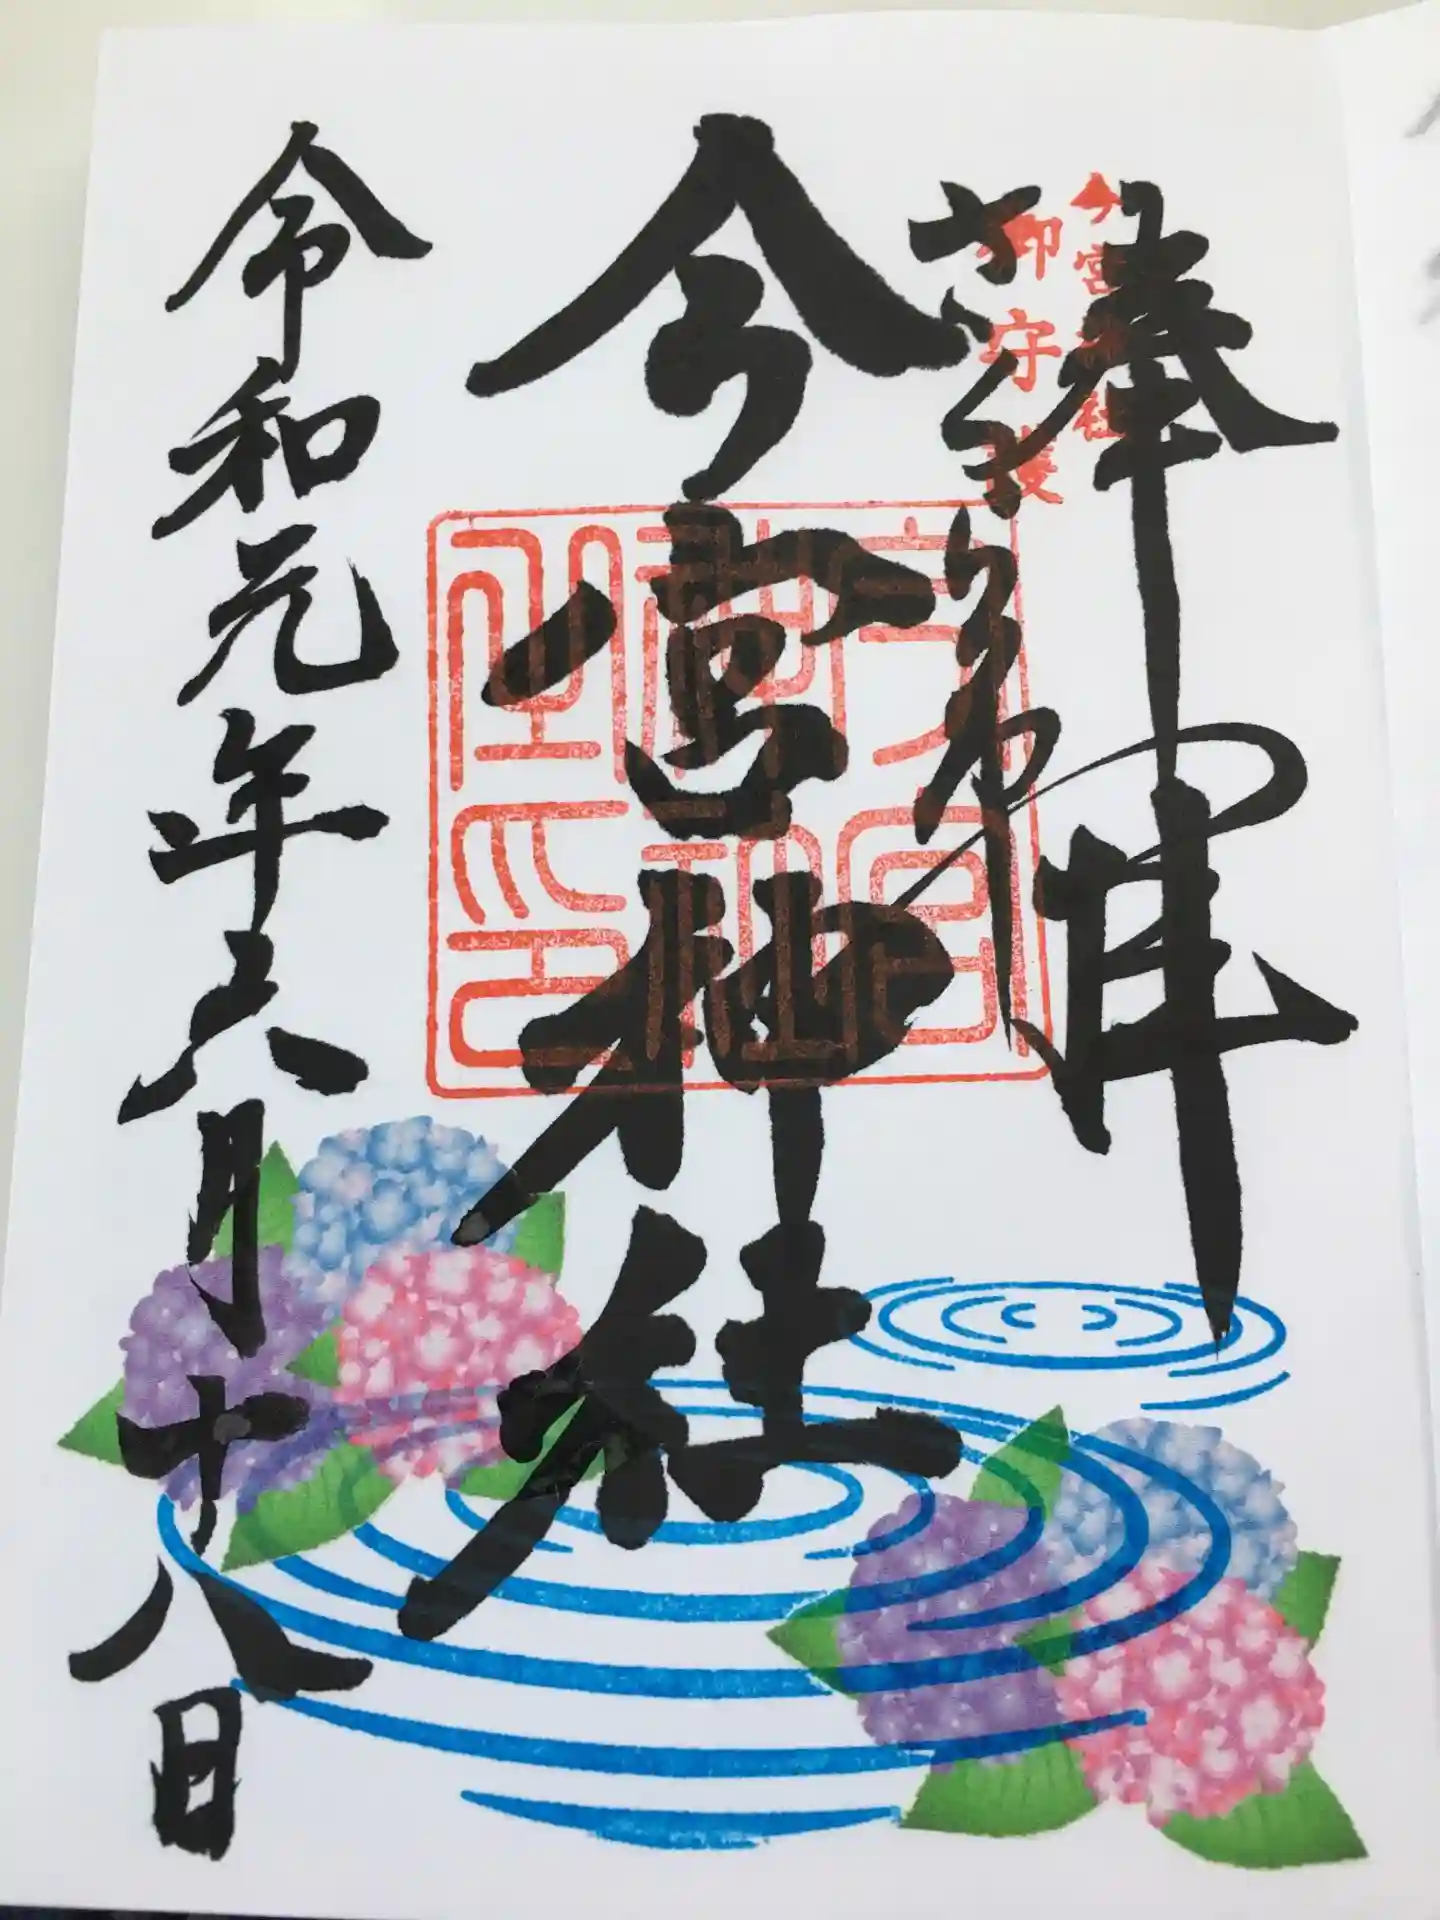 奉拝
今宮神社
御守護
さくら市
今宮神社
今宮神社之印
令和元年六月十八日